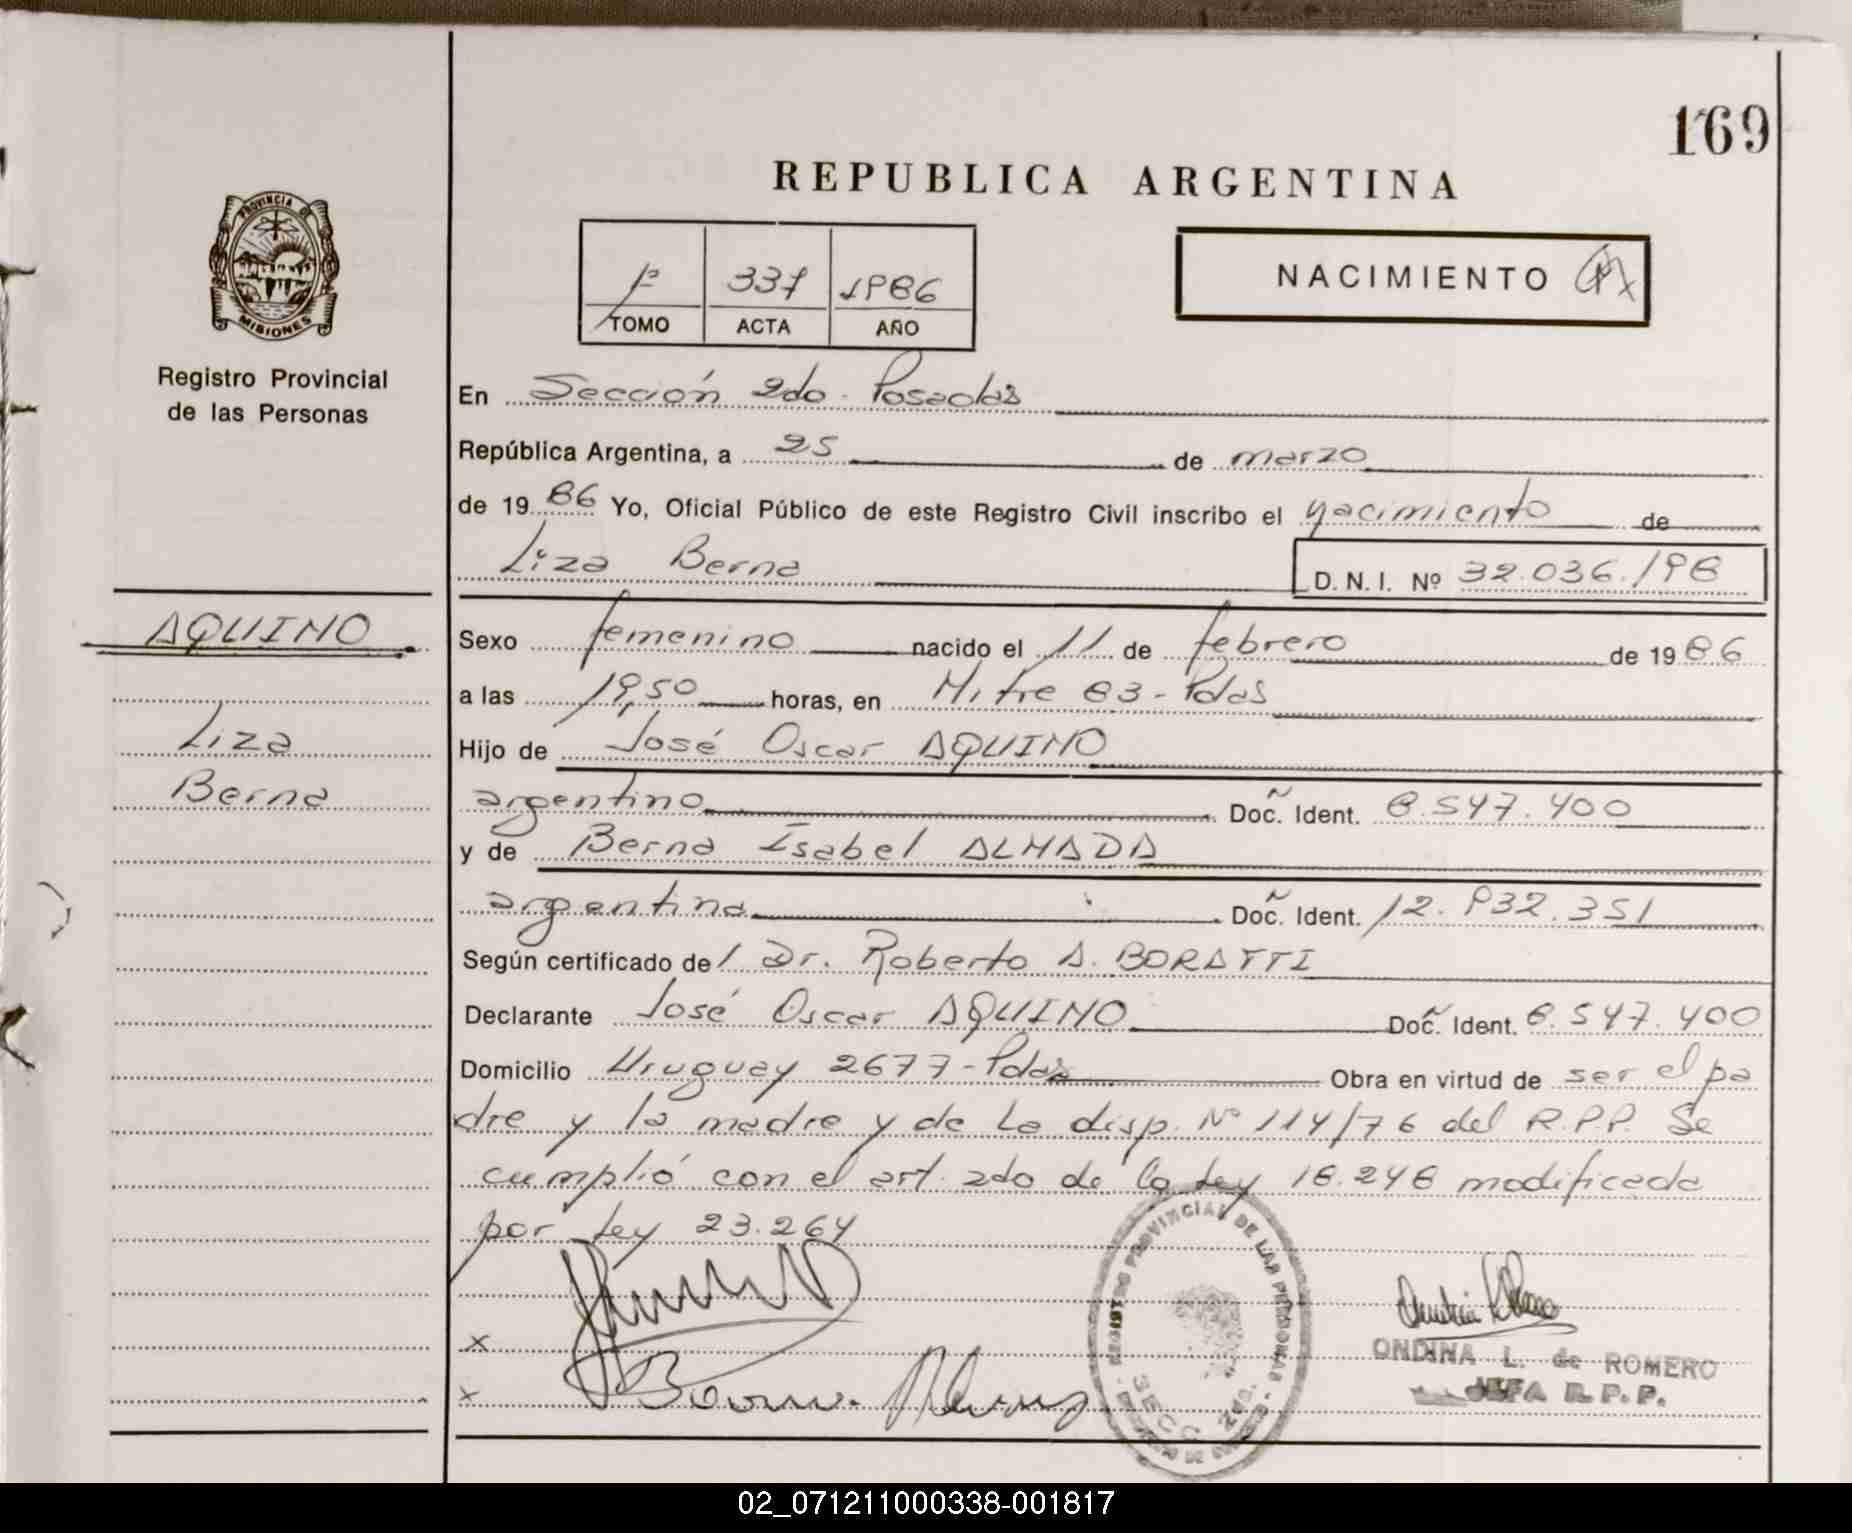 169
REPUBLICA ARGENTINA
PROVINCIA DE
MISIONES
Registro Provincial
de las Personas
1º 337 1986
TOMO ACTA AÑO
NACIMIENTO
En Sección 2do - Posadas
República Argentina, a 25 de marzo
de 1986 Yo, Oficial Público de este Registro Civil inscribo el nacimiento de
Liza Berna D. N. I. Nº 32.036.198
AQUINO
Liza
Berna
Sexo femenino nacido el 11 de febrero de 1986
a las 19,50 horas, en Mitre 83 - Pdas
Hijo de José Oscar AQUINO
argentino Doc. Ident. 8.547.400
y de Berna Isabel ALMADA
argentina Doc. Ident. 12.932.351
Según certificado del Dr. Roberto A. BORATTI
Declarante José Oscar AQUINO Doc. Ident. 8.547.400
Domicilio Uruguay 2677 - Pdas Obra en virtud de ser el pa
dre y la madre y de la disp. Nº 114/76 del R.P.P. Se
cumplió con el art. 2do de la Ley 18.248 modificada
por Ley 23.264
x
x Berna
REGISTRO PROVINCIAL DE LAS PERSONAS
SECC. 2da.
ONDINA L. de ROMERO
JEFA R. P. P.
02_071211000338-001817